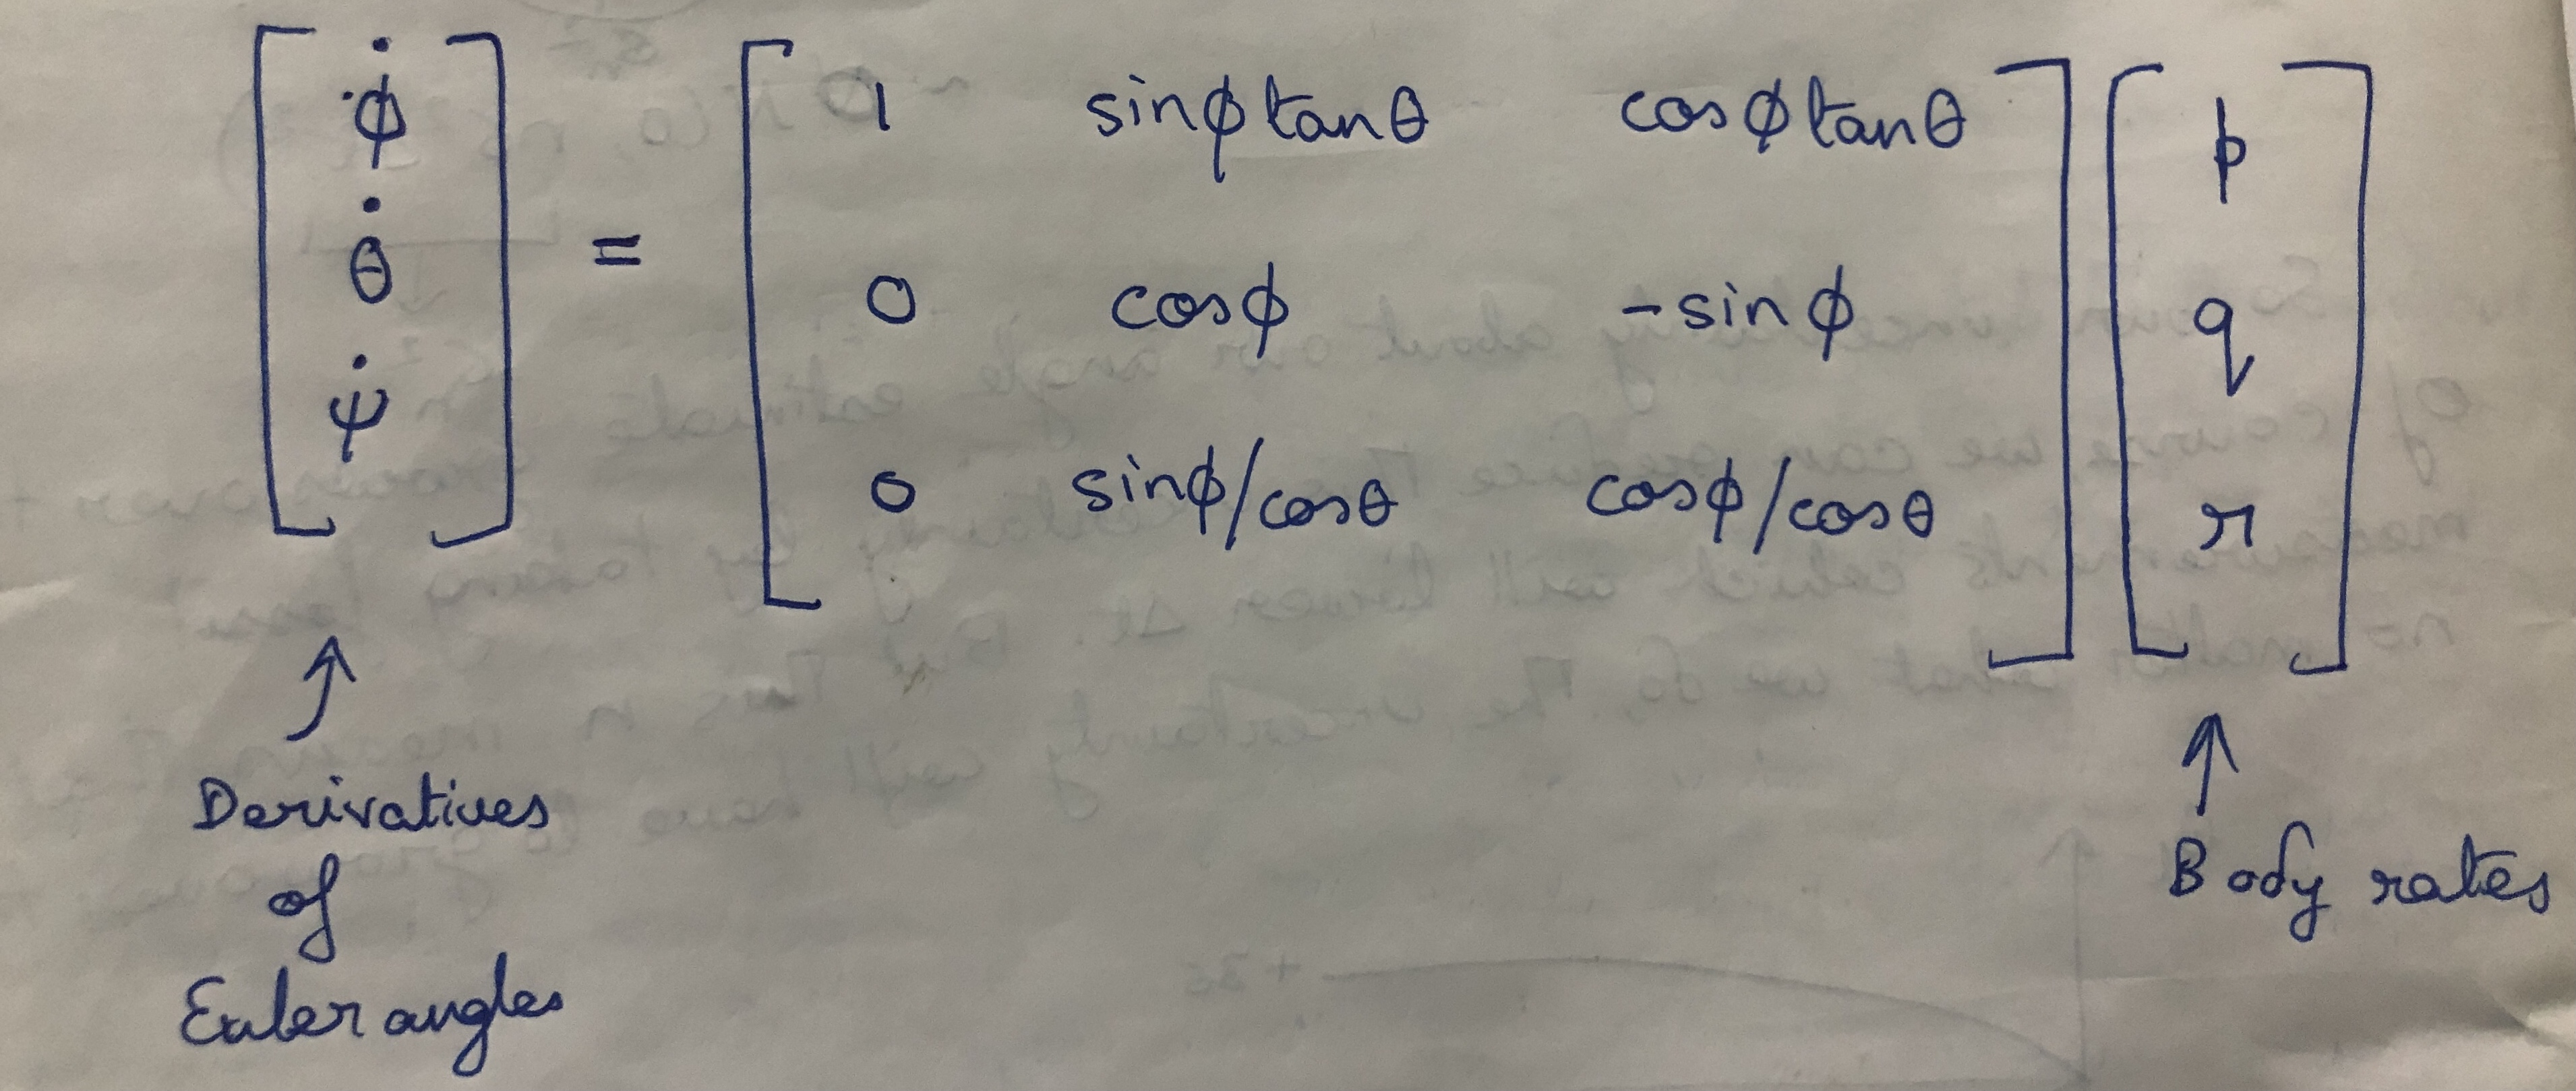 [φ̇ θ̇ ψ̇] = [1 sinφtanθ cosφtanθ
0 cosφ -sinφ
0 sinφ/cosθ cosφ/cosθ] [p q r]
Derivatives
of
Euler angles
Body rates